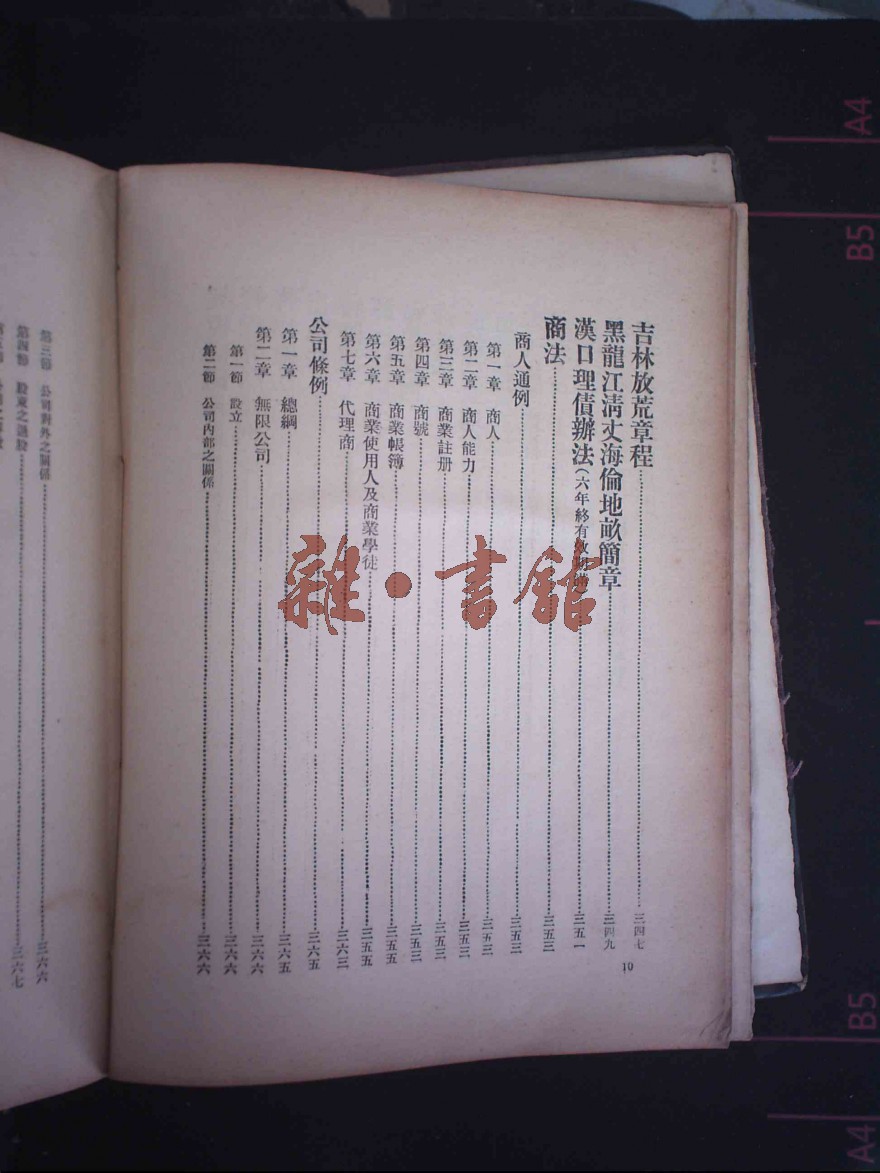 吉林放荒章程……三四七
黑龍江淸丈海倫地畝簡章……三四九
漢口理債辦法(六年終有效……三五一
商法……三五三
商人通例……三五三
第一章 商人……三五三
第二章 商人能力……三五三
第三章 商業註册……三五三
第四章 商號……三五三
第五章 商業帳簿……三五五
第六章 商業使用人及商業學徒……三五五
第七章 代理商……三六三
公司條例……三六五
第一章 總綱……三六五
第二章 無限公司……三六六
第一節 設立……三六六
第二節 公司內部之關係……三六六
10
第三節 公司對外之關係……三六六
第四節 股東之退股……三六七
雜·書館
A4
B5
B5
A4